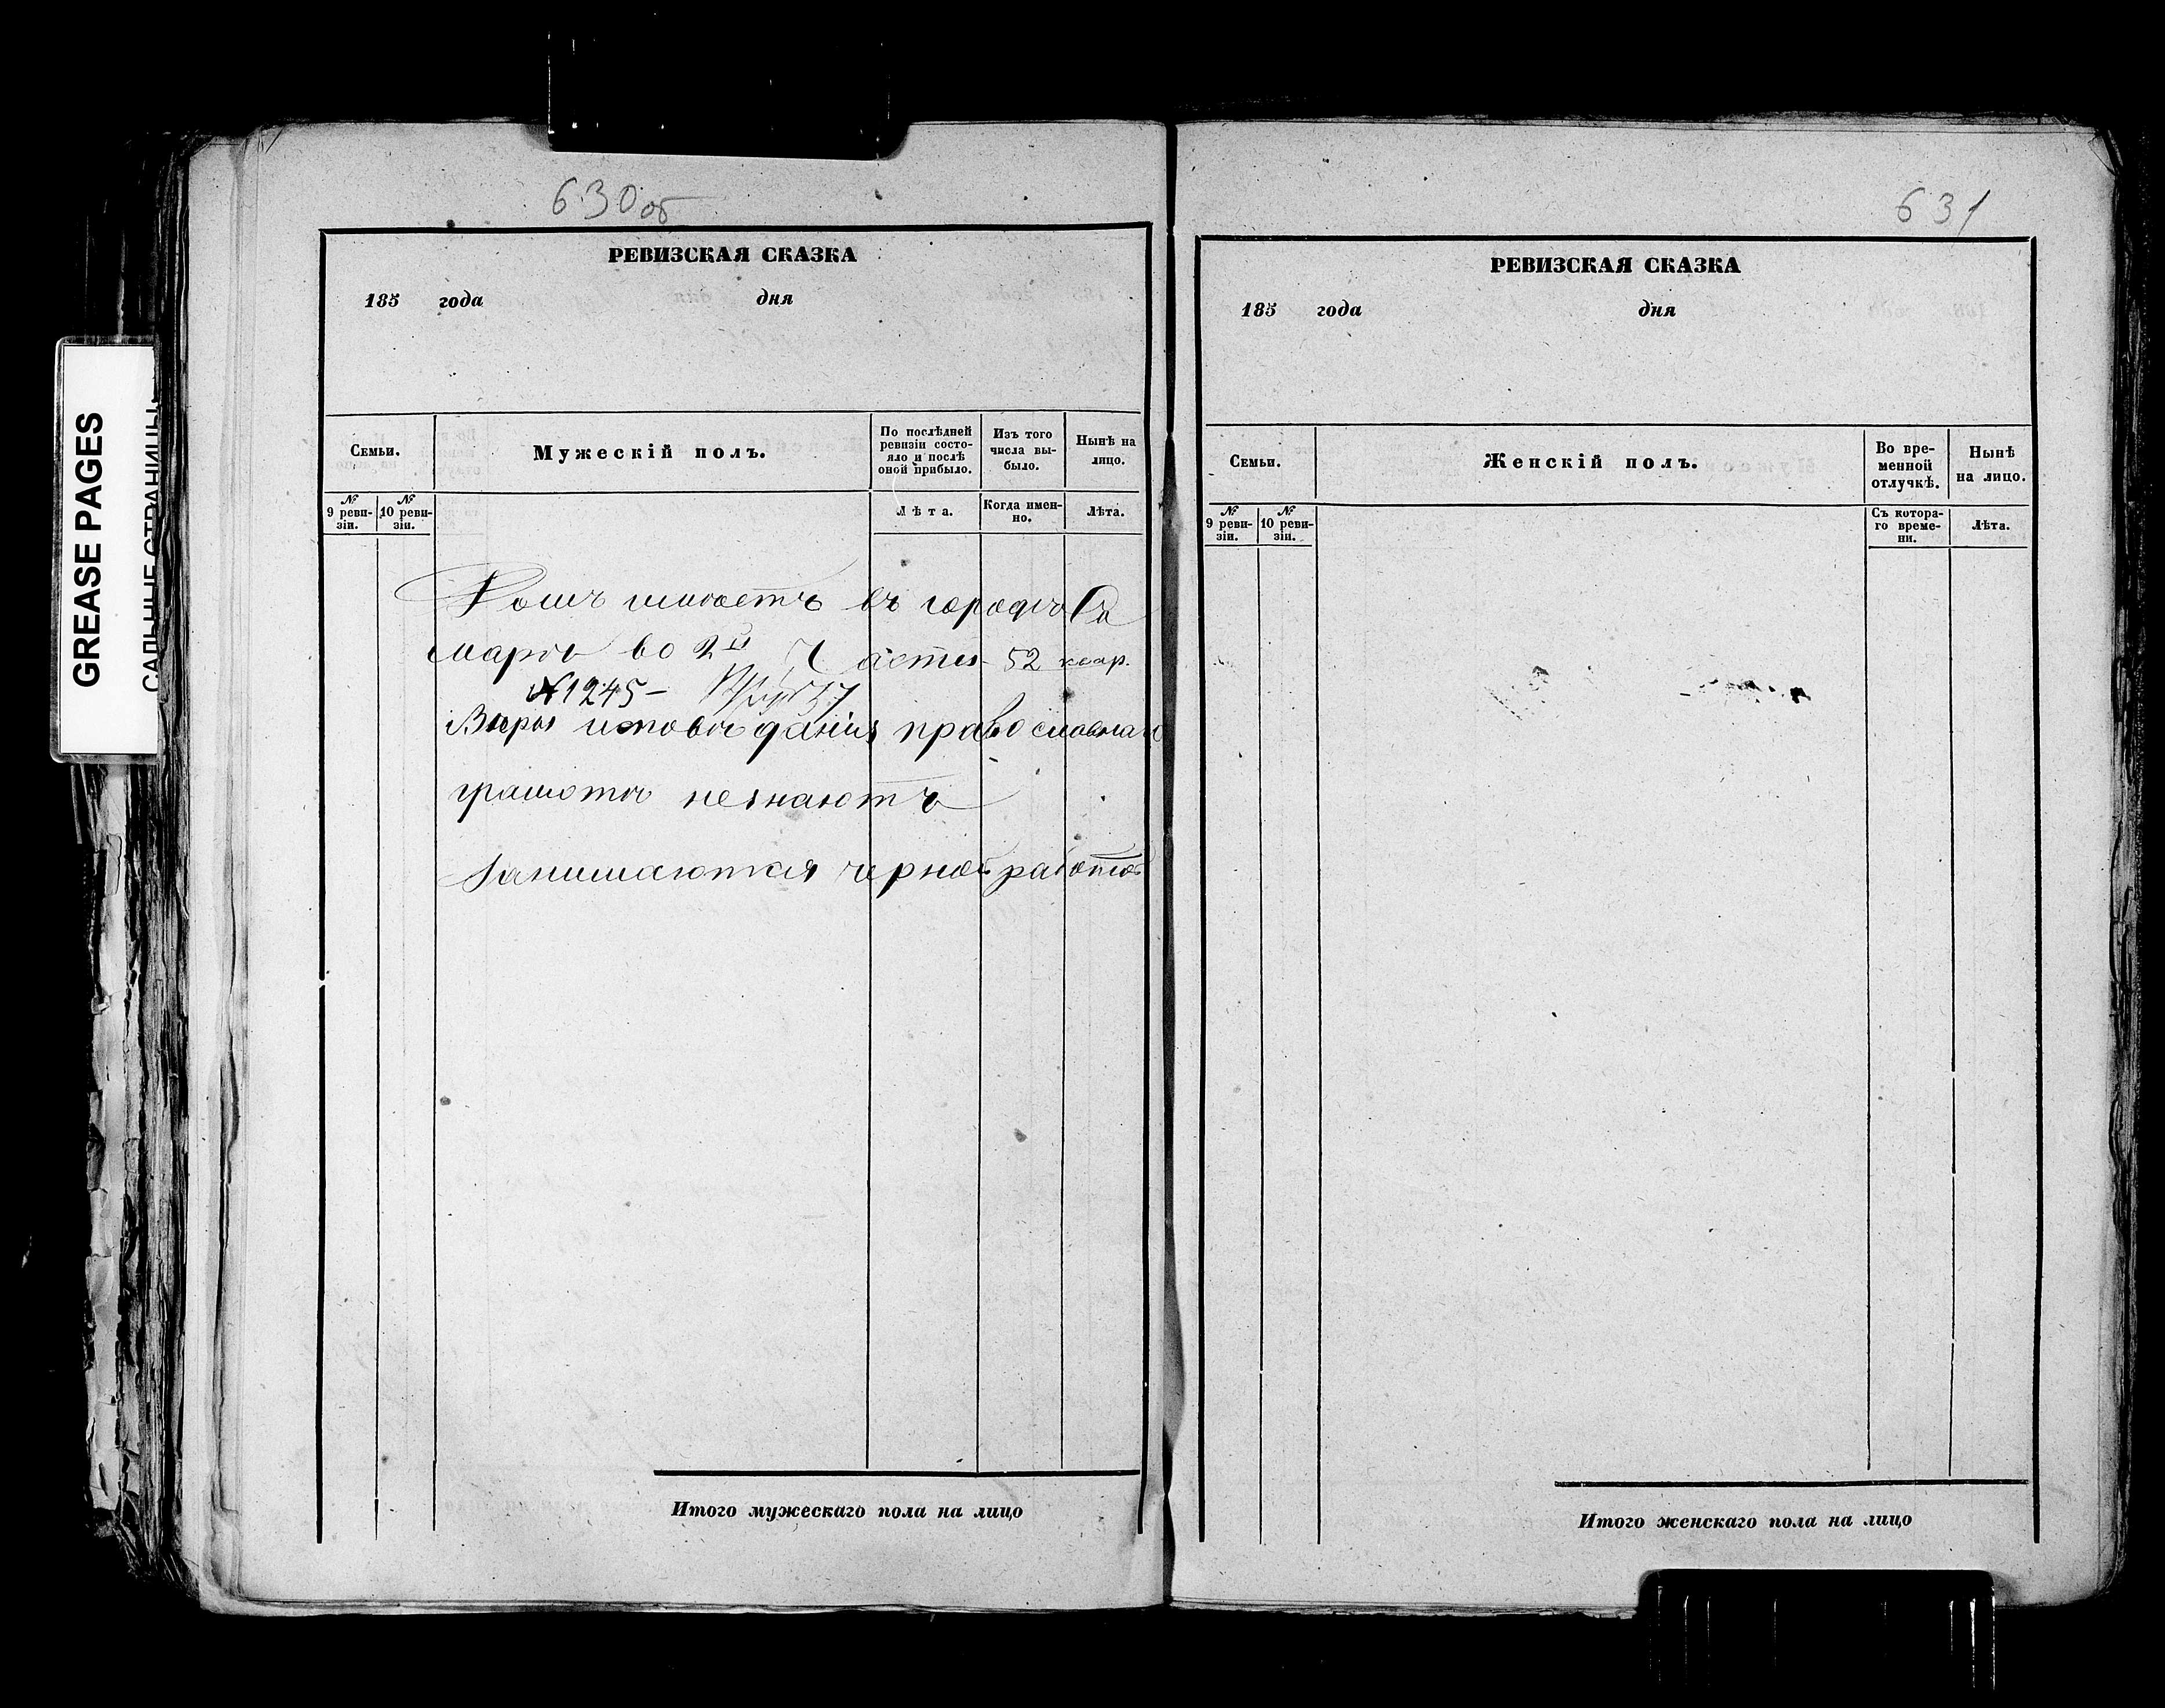 GREASE PAGES
САЛЬНЫЕ СТРАНИЦЫ
630об
РЕВИЗСКАЯ СКАЗКА
185 года дня
Семьи.
Мужескій полъ.
По послѣдней ревизіи состо-
яло и послѣ
оной прибыло.
Изъ того
числа вы-
было.
Нынѣ на
лицо.
№
9 реви-
зіи.
№
10 реви-
зіи.
Лѣта.
Когда имен-
но.
Лѣта.
Домъ имѣетъ въ городѣ Са
марѣ во 2й Части 52 квар.
№1245 –
Вѣры исповѣданія православнаго
грамотѣ незнаютъ
Занимаются черной работой
Итого мужескаго пола на лицо
631
РЕВИЗСКАЯ СКАЗКА
185 года дня
Семьи.
Женскій полъ.
Во вре-
менной
отлучкѣ.
Нынѣ
на лицо.
№
9 реви-
зіи.
№
10 реви-
зіи.
Съ котора-
го време-
ни.
Лѣта.
Итого женскаго пола на лицо